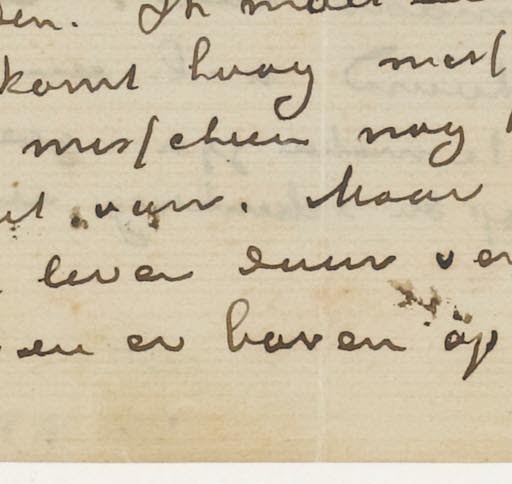 en. Ik moet
komt hoog mis
misschien nog
uit van. Maar
leven duur ver
en er boven op